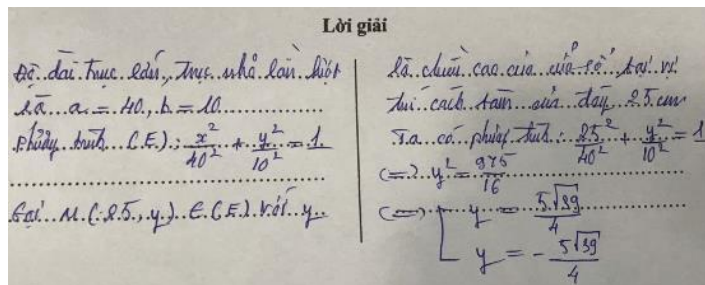 Lời giải
Độ dài trục lớn, trục nhỏ lần lượt
là a = 40, b = 10
Phương trình (E): x²/40² + y²/10² = 1
Gọi M(25, y) ∈ (E) với y
là chiều cao của cửa sổ, tại vị
trí cách tâm của đáy 25 cm
Ta có phương trình: 25²/40² + y²/10² = 1
<=> y² = 975/16
<=> [ y = 5√39/4
y = -5√39/4